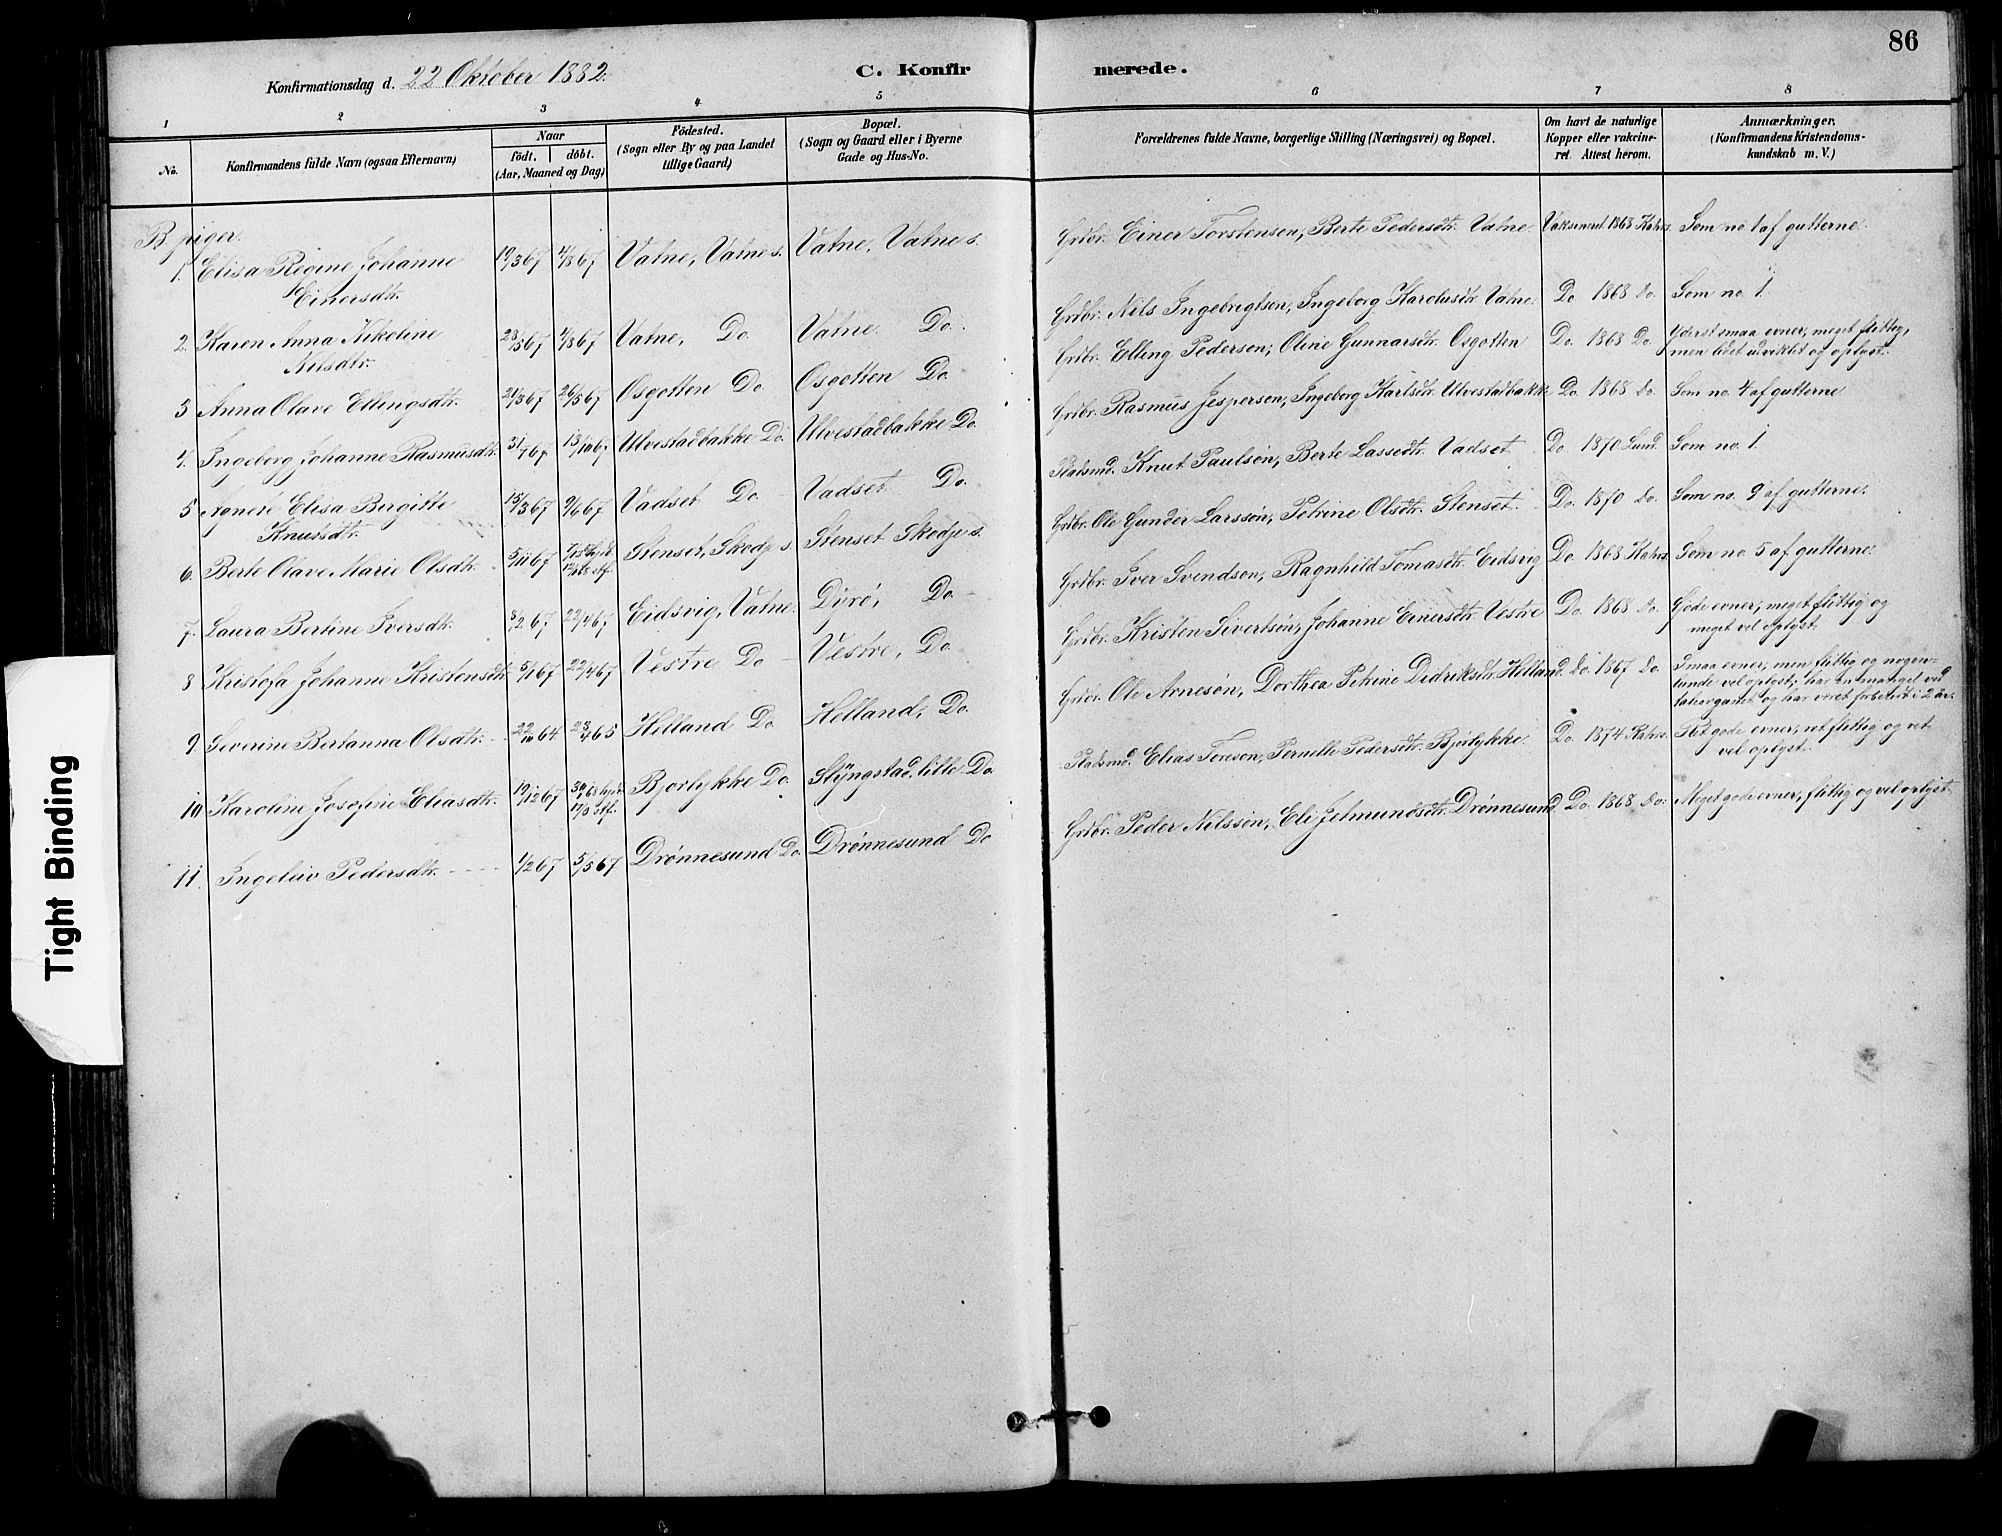 86
Konfirmationsdag d. 22 Oktober 1882.
C. Konfirmerede.
1 2 3 4 5 6 7 8
No.
Konfirmandens fulde Navn (ogsaa Efternavn)
Naar
født. døbt.
(Aar, Maaned og Dag)
Fødested.
(Sogn eller By og paa Landet
tillige Gaard)
Bopæl.
(Sogn og Gaard eller i Byerne
Gade og Hus-No.
Forældrenes fulde Navne, borgerlige Stilling (Næringsvei) og Bopæl.
Om havt de naturlige
Kopper eller vakcine-
ret. Attest herom.
Anmærkninger.
(Konfirmandens Kristendoms-
kundskab m. V.)
B. piger.
1. Elisa Regine Johanne 19/3 67 4/8 67 Vatne, Vatne s. Vatne, Vatne s. Grdbr. Einer Torstensen, Berte Pedersdtr. Vatne. Vaksineret 1868 Kahrs. Som no 1 af gutterne.
Einersdtr.
2. Karen Anna Nikoline 28/5 67 4/8 67 Vatne, Do. Vatne. Do. Grdbr. Nils Ingebrigtsen, Ingeborg Karolusdtr. Vatne. Do. 1868 do. Som no. 1.
Nilsdtr.
3 Anna Olave Ellingsdtr. 21/3 67 26/5 67 Osgotten Do. Osgotten Do. Grdbr. Elling Pedersen, Oline Gunnarsdtr. Osgotten Do. 1868 Do. Yderst smaa evner, meget flittig,
men lidet udviklet og oplyst.
4. Ingeborg Johanne Rasmusdtr. 31/7 67 13/10 67 Ulvestadbakke Do. Ulvestadbakke Do. Grdbr. Rasmus Jespersen, Ingeborg Karlsdtr. Ulvestadbakk. Do. 1868 do. Som no. 4 af gutterne
5 Agnete Elisa Birgitte 15/3 67 9/6 67 Vadset Do. Vadset Do. Pladsmd. Knut Paulsøn, Berte Lassedtr. Vadset Do. 1870 Lund. Som no. 1.
Knutsdtr.
6. Berte Olave Marie Olsdtr. 5/11 67 Stenset, Skodje s Stenset Skodje s. Grdbr. Ole Gunder Larssøn, Petrine Olsdtr. Stenset. Do. 1870 do. Som no. 9 af gutterne.
7. Laura Bertine Iversdtr. 8/2 67 22/4 67 Eidsvig, Vatne. Dyrø, Do. Grdbr. Iver Svendsøn, Ragnhild Tomasdtr. Eidsvig Do. 1868 Kahrs. Som no 5 af gutterne.
8 Kristofa Johanne Kristensdtr. 5/1 67 22/4 67 Vestre Do Vestre, Do. Grdbr. Kristen Sivertsøn, Johanne Einersdtr. Vestre Do. 1868 do. Gode evner, meget flittig og
meget vel oplyst.
9. Severine Bertanna Olsdtr. 22/10 64. 23/4 65 Helland Do. Helland, Do. Grdbr. Ole Arnesøn, Dorthea Petrine Didriksdtr. Helland. Do. 1867 do. Smaa evner, men flittig og nogen-
lunde vel oplyst; har en mangel ved
taleorganet og har været forberedt i 2 år.
10 Karoline Josefine Eliasdtr. 19/12 67 30/1 68 hjd. 17/3 stf. Bjorlykke Do. Slyngstad, lille Do. Pladsmd. Elias Toresøn, Pernille Pedersdtr. Bjørlykke. Do. 1874 Kahrs. Ret gode evner, ret flittig og ret
vel oplyst.
11. Ingeleiv Pedersdtr. 1/2 67 5/5 67 Drønnesund Do. Drønnesund Do Grdbr. Peder Nilssøn, Eli Jetmundsdtr. Drønnesund. Do. 1868 do. Meget gode evner, flittig og vel oplyst.
Tight Binding